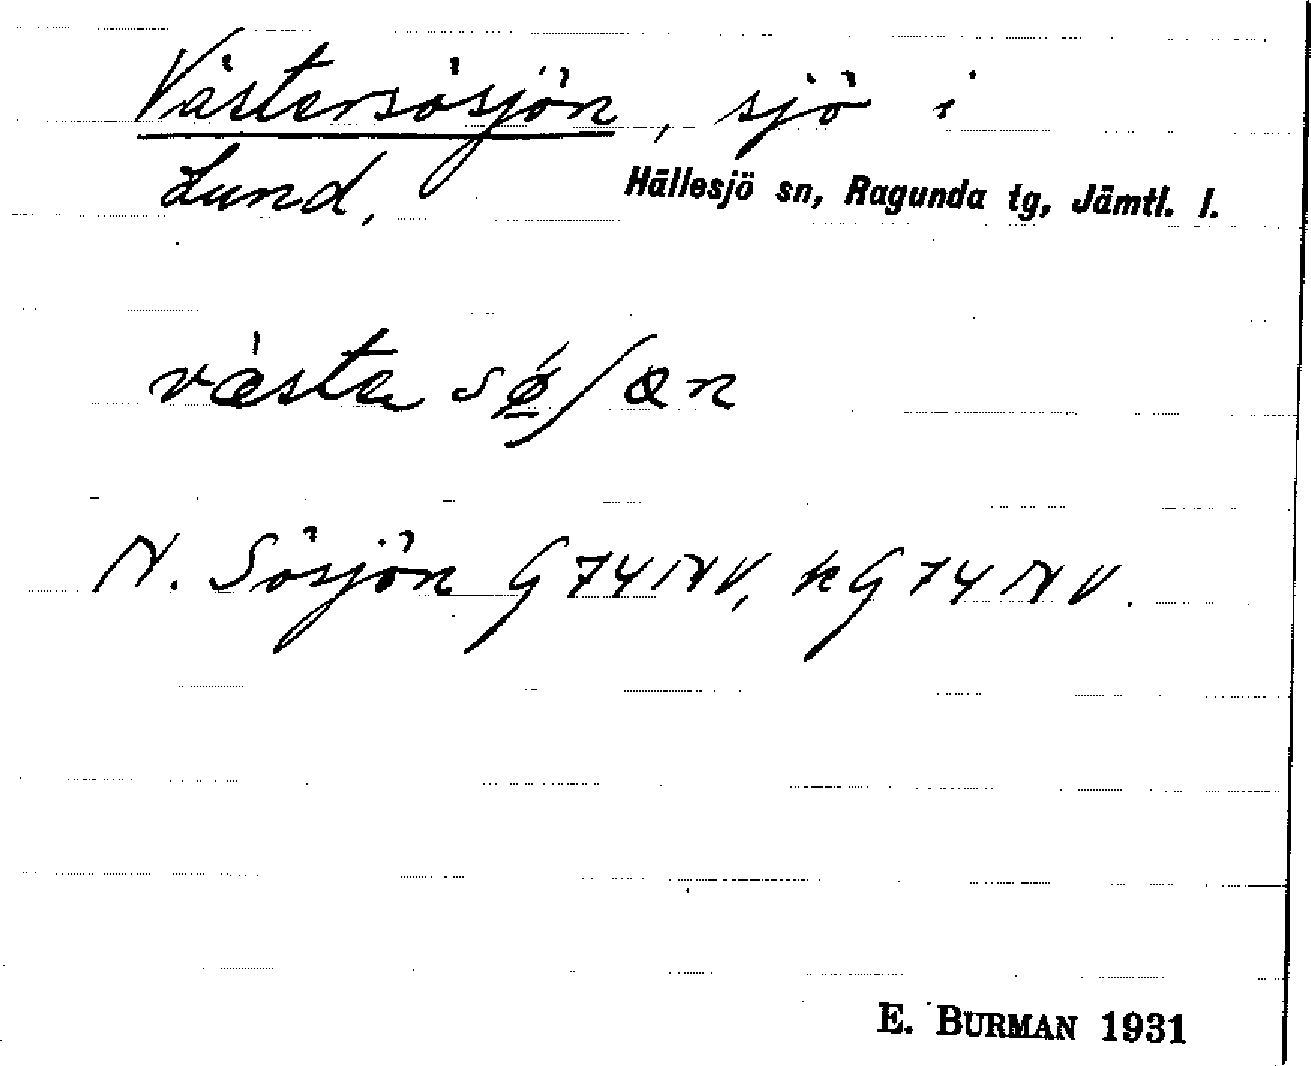 Västersösjön, sjö i
Lund, Hällesjö sn, Ragunda tg, Jämtl. l.
väste sǿ̱ʃɷn
N. Sösjön G 74 NV, kG 74 NV.
E. BURMAN 1931